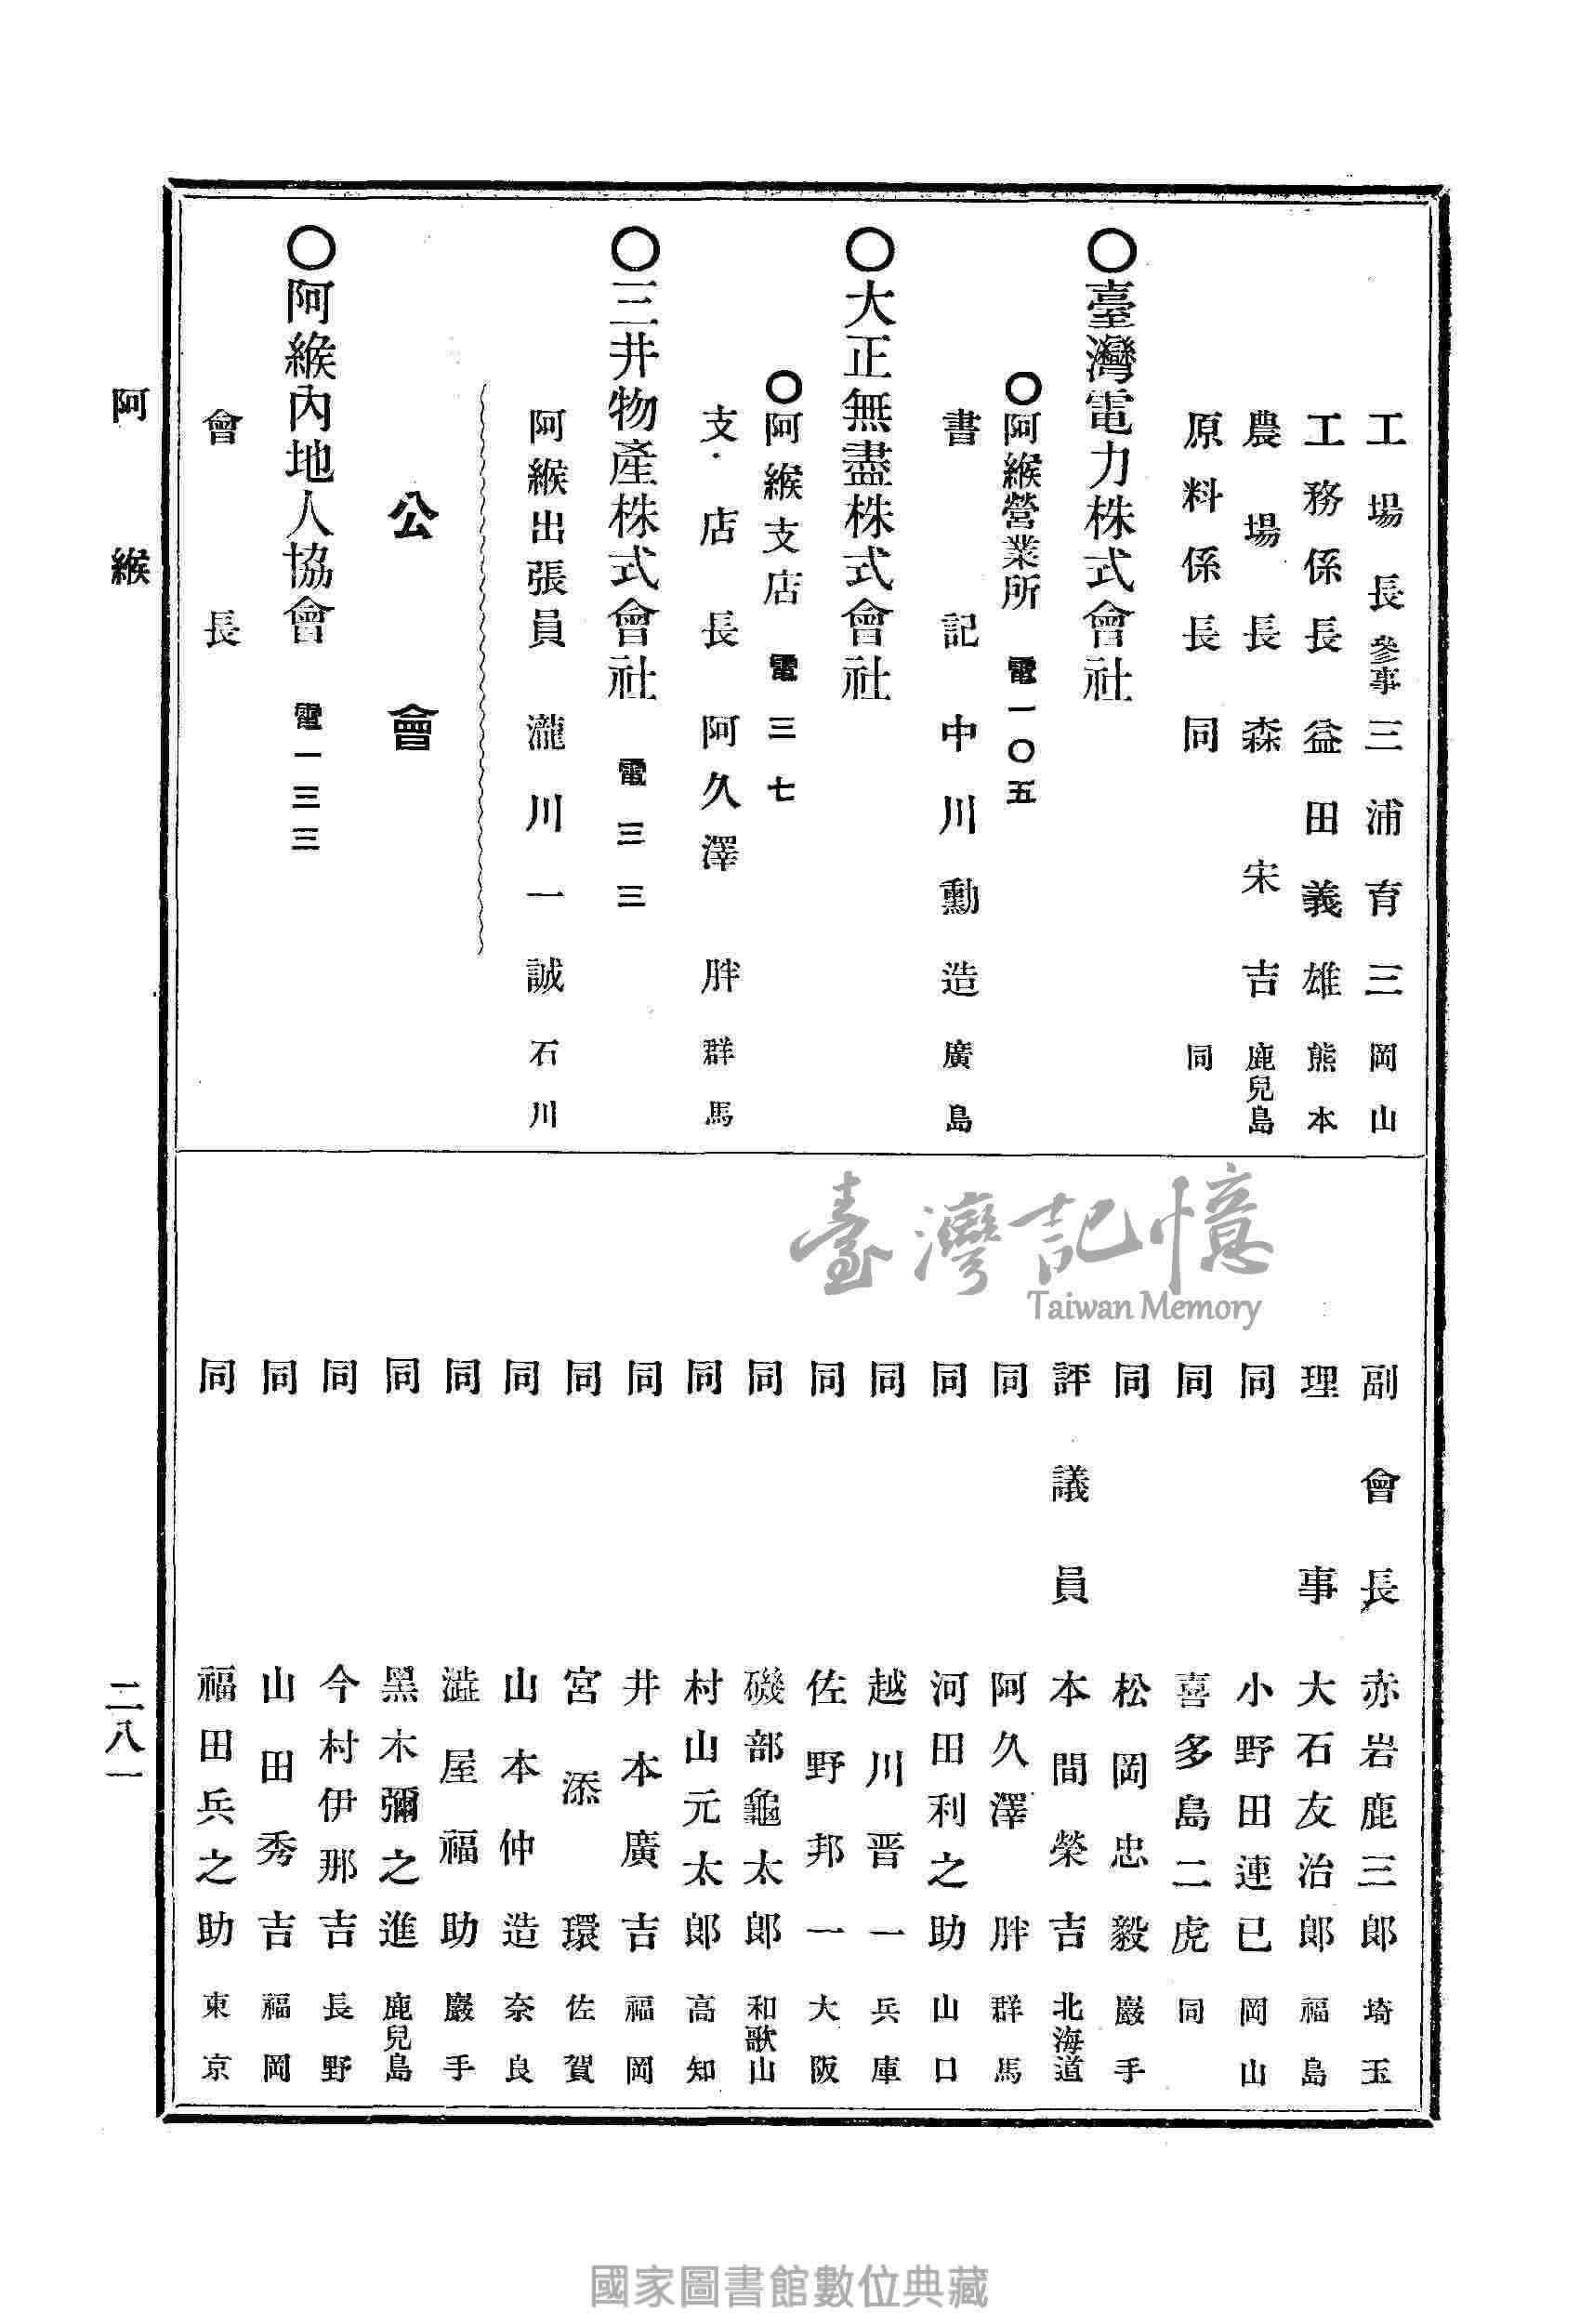 工場長參事 三浦育三 岡山
工務係長 益田義雄 熊本
農場長 森宋吉 鹿兒島
原料係長 同 同
〇臺灣電力株式會社
〇阿緱營業所 電一〇五
書記 中川勳造 廣島
〇大正無盡株式會社
〇阿緱支店 電三七
支店長 阿久澤胖 群馬
〇三井物產株式會社 電三三
阿緱出張員 瀧川一誠 石川
公會
〇阿緱內地人協會 電一三三
會長
副會長 赤岩鹿三郎 埼玉
理事 大石友治郎 福島
同 小野田連已 岡山
同 喜多島二虎 同
同 松岡忠毅 巖手
評議員 本間榮吉 北海道
同 阿久澤胖 群馬
同 河田利之助 山口
同 越川晋一 兵庫
同 佐野邦一 大阪
同 磯部龜太郎 和歌山
同 村山元太郎 高知
同 井本廣吉 福岡
同 宮添環 佐賀
同 山本仲造 奈良
同 澁屋福助 巖手
同 黑木彌之進 鹿兒島
同 今村伊那吉 長野
同 山田秀吉 福岡
同 福田兵之助 東京
阿緱
二八一
臺灣記憶
Taiwan Memory
國家圖書館數位典藏